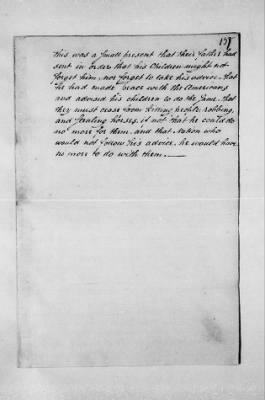 137
This was a small present that their Father had
sent in order that his Children might not
forget him, nor forget to take his advice. that
he had made peace with the Americans
and advised his children to do the same. that
they must cease from killing people, robbing,
and stealing horses, if not that he could do
no more for them, and that Nation who
would not follow his advice, he would have
no more to do with them.